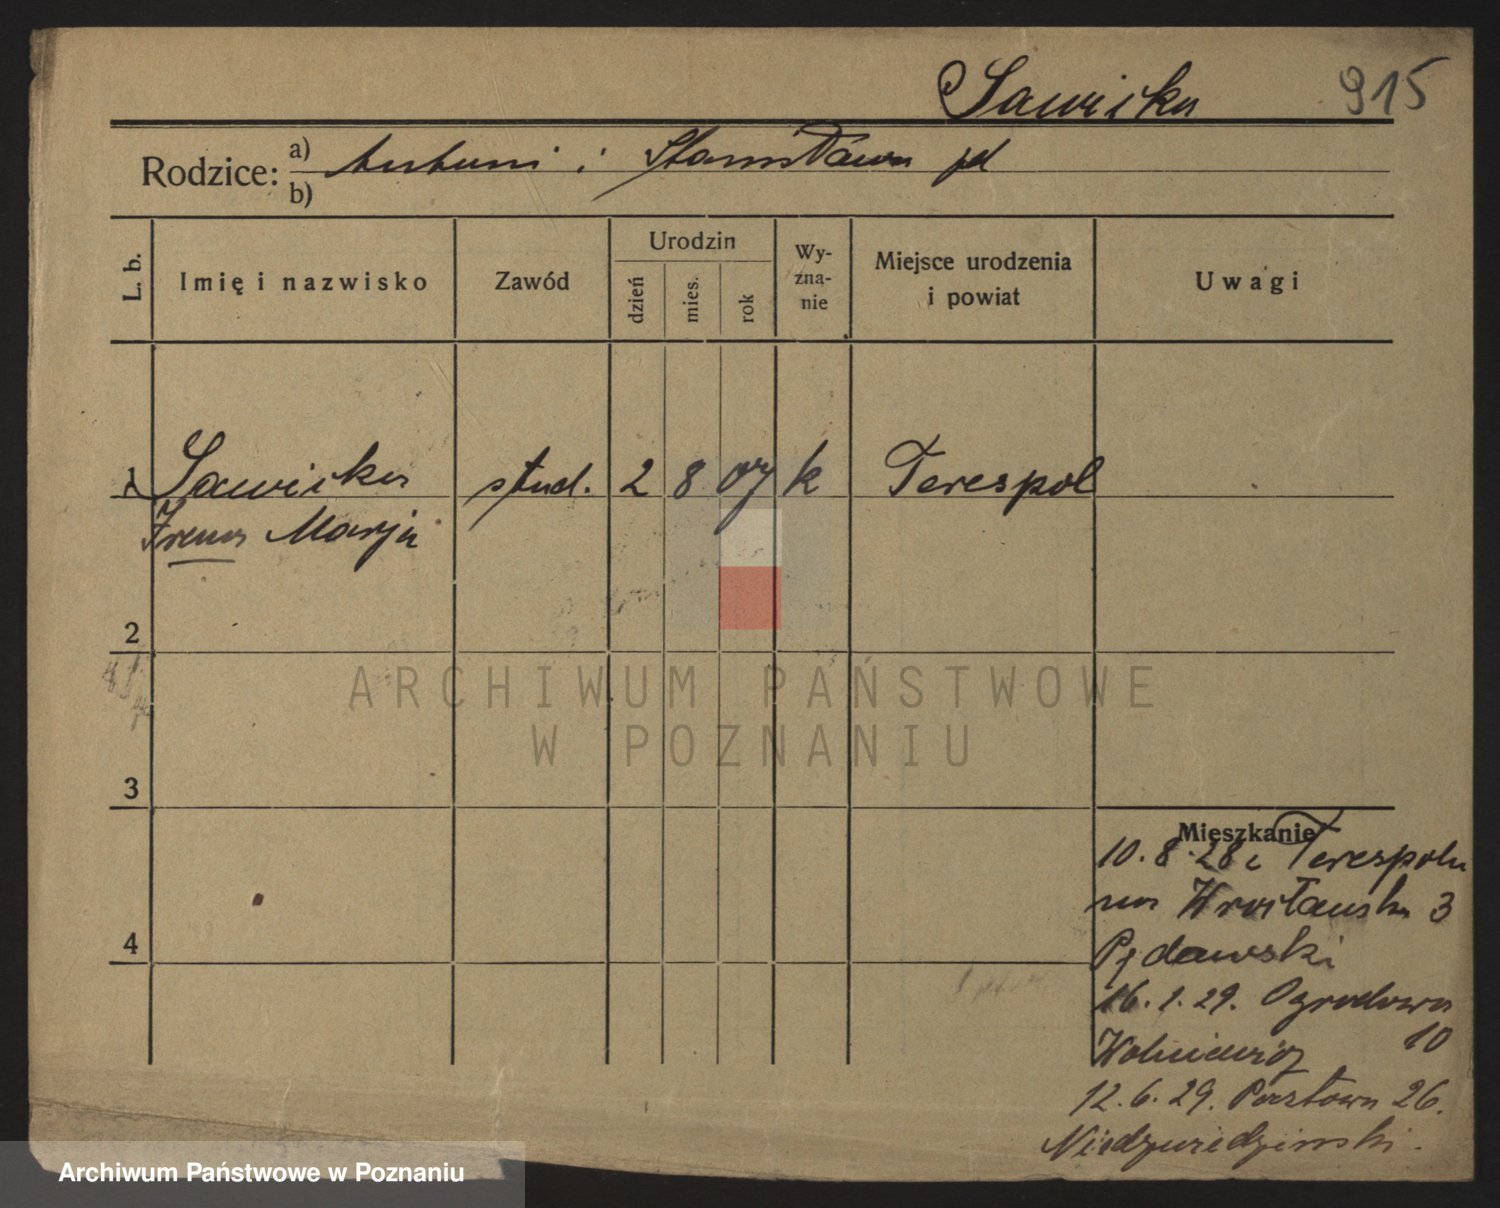 Sawicka 915
Rodzice: a) Antoni i Stanisława
b)
L. b. Imię i nazwisko Zawód Urodzin dzień mies. rok Wyznanie Miejsce urodzenia i powiat Uwagi
1 Sawicka stud. 2 8 07 k Terespol
Irena Marja
2
3
4
Mieszkanie
10.8.28 z Terespola
na Wrocławska 3
16.1.29. Ogrodowa
10
12.6.29. Pocztowa 26.
Niedzwiedzinski.
ARCHIWUM PAŃSTWOWE
W POZNANIU
Archiwum Państwowe w Poznaniu